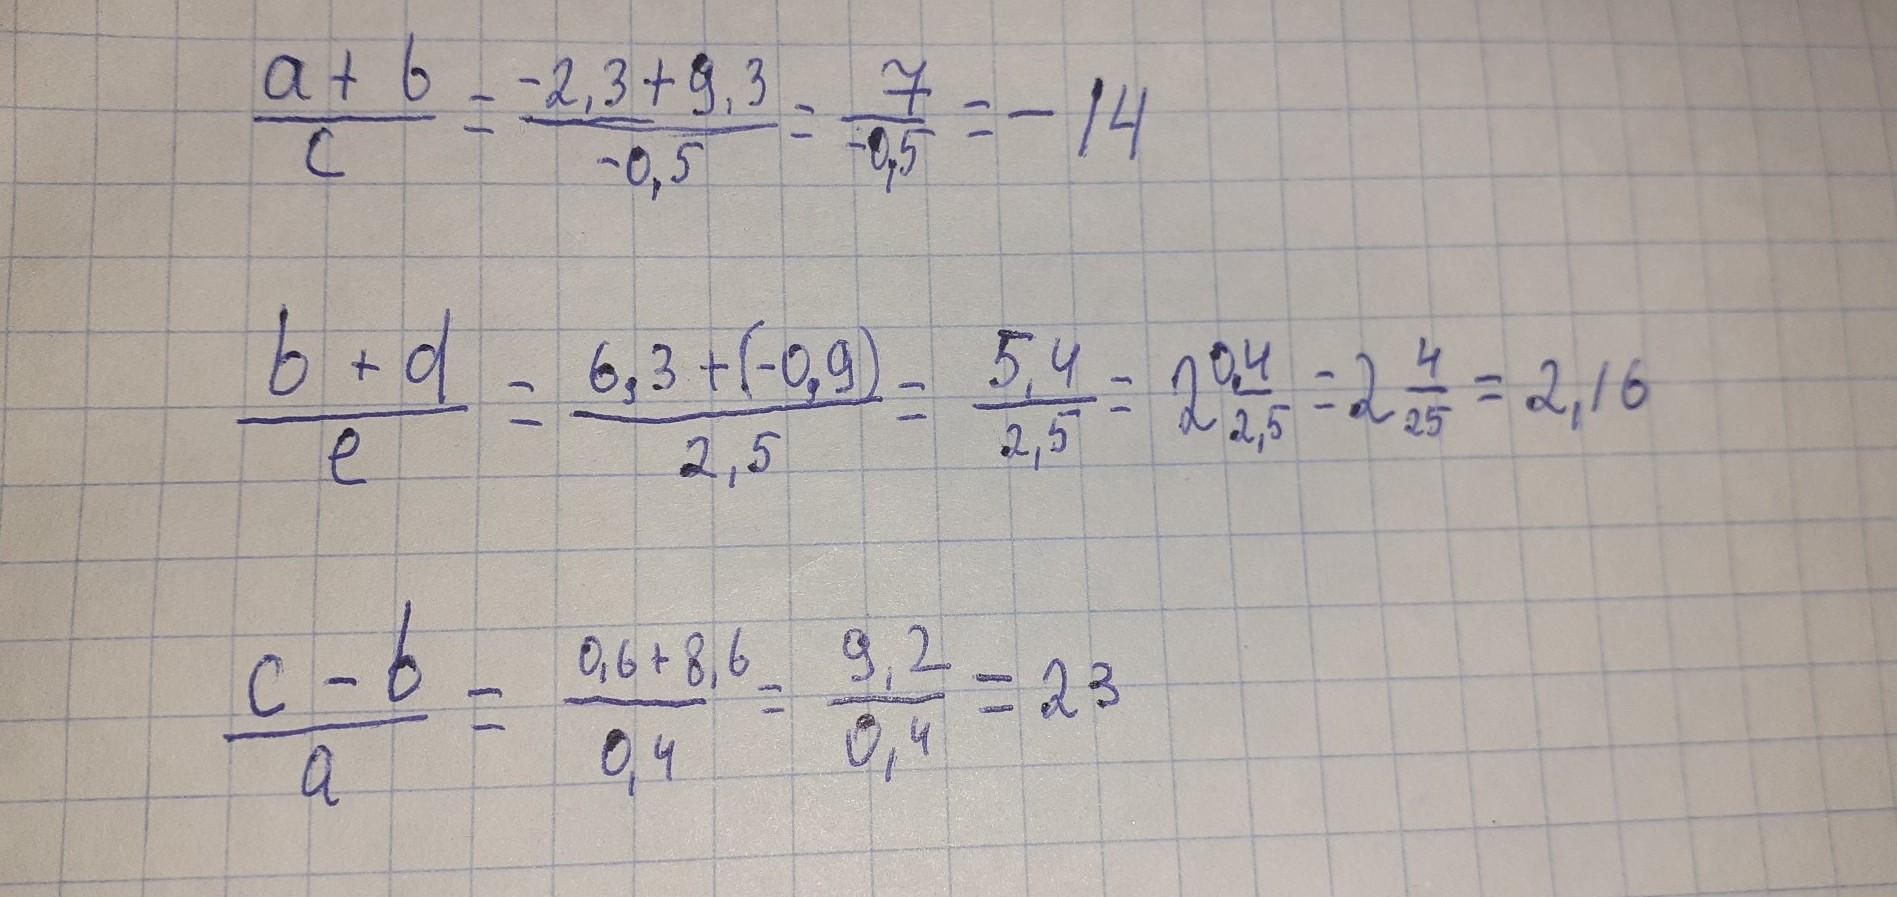 (a + b)/c = (-2,3 + 9,3)/(-0,5) = 7/(-0,5) = -14
(b + d)/e = (6,3 + (-0,9))/2,5 = 5,4/2,5 = 2 0,4/2,5 = 2 4/25 = 2,16
(c - b)/a = (0,6 + 8,6)/0,4 = 9,2/0,4 = 23